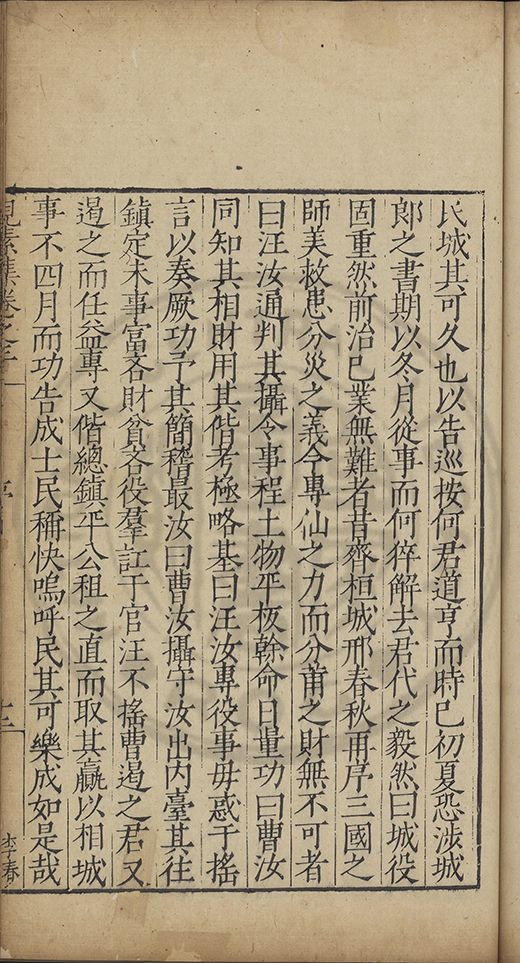 民城其可久也以告巡按何君道亨而時已初夏恐涉城
郎之書期以冬月從事而何猝解去君代之毅然曰城役
固重然前治已業無難者昔齊桓城邢春秋再序三國之
師美救患分災之義今專仙之力而分莆之財無不可者
曰汪汝通判其攝令事程土物平板榦命日量功曰曹汝
同知其相財用其偕考極略基曰汪汝專役事毋惑于搖
言以奏厥功予其簡稽最汝曰曹汝攝守汝出內臺其往
鎮定未事富吝財貧吝役羣訌于官汪不搖曹遏之君又
遏之而任益專又偕總鎮平公租之直而取其羸以相城
事不四月而功告成士民稱快嗚呼民其可樂成如是哉
見素集卷之
李春